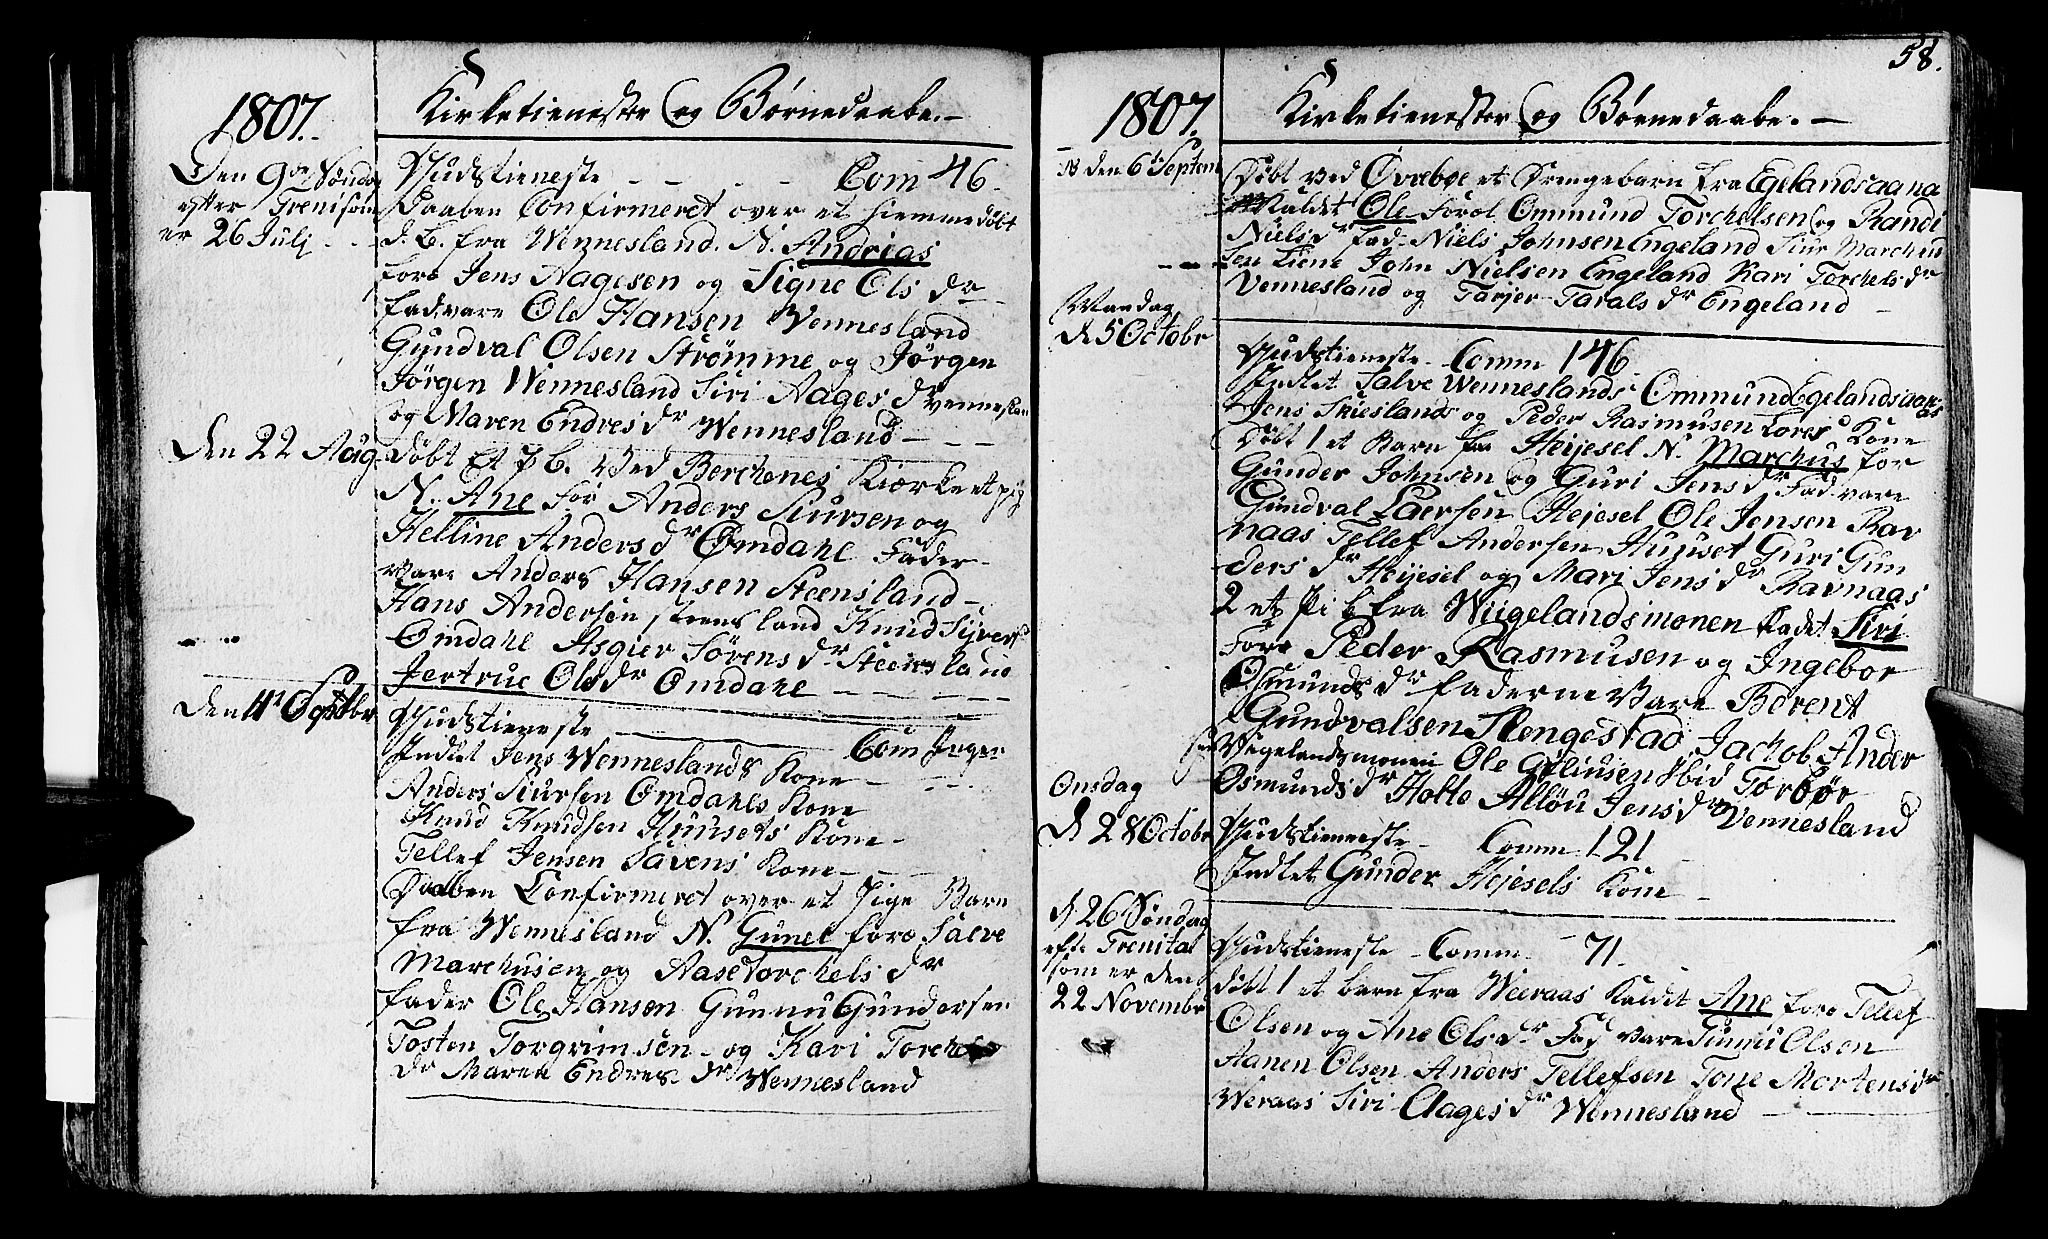 1807.
Kirketieneste og Børnedaabe.
Den 9de Søndag
efter Trenis som
er 26 Juli
Gudstieneste Com 46
Daaben Confirmeret over et hiemmedøbt
d. B. fra Wennesland. N. Andreas
fore Jens Aagesen og Signe Ols dr
fad vare Ole Hansen Wennesland
Gundval Olsen Strømme og Jørgen
Jørgen Wennesland Siri Aages dr Venneslan
og Maren Endres dr Wennesland
Den 22 Aug
døbt et P b. ved Berchenes Kiørke et pig
N. Ane for Anders Siursen og
Helline Anders dr Omdahl Fader
vare Anders Hansen Steensland
Hans Andersen steensland Knud Sijvers
Omdahl Asgier Sørens dr Steensland
Jertrue Ols dr Omdahl
Gudstieneste Com Ingen
Indlet Jens Wenneslands Kone
Anders Siursen Omdahls Kone
Knud Knudsen Huusets Kone
Tellef Jensen Savens Kone
Daaben Confirmeret over et Pige Barn
fra Wennesland N. Gunel fore Salve
Marchusen og Aase Torchels dr
fader Ole Hansen Gunnu Gundersen
Tosten Torgrimsen og Kari Torchels
dr Maren Endres dr Wennesland
58.
1807.
Kirketienester og Børnedaabe.
N den 6t Septem
Døbt ved Øvrebøe et Drengebarn fra Egelandsaana
Kaldet Ole Foræl Ommund Torchelsen og Randi
Niels dr Fad Niels Johnsen Engeland Siur Marchu
sen Liene John Nielsen Engeland Kari Torchels dr
Vennesland og Tarjer Tarals dr Engeland
Mandag
d 5 Octobr
Gudstieneste Comm 146
Indlet Salve Wenneslands Ommund Egelandsaanas
Jens Skieslands og Peder Rasmusen Kone
Døbt 1 et Barn fra Heijesel N. Marchus for
Gunder Johnsen og Guri Jens dr Fad vare
Gundval Laersen Hejesel Ole Jensen Rav
naas Tellef Andersen Huuset Guri Gun
ders dr Heijesel og Mari Jens dr Ravnaas
2 et Pi b fra Wiigelandsmonen Kadet Siri
Fore Peder Rasmusen og Ingebor
Osmunds dr faderne vare Berent
Gundvalsen Stengestad Jachob Ander
sen Vigelandsmonen Ole Ibid Torbør
Osmunds dr Holte Jens dr Vennesland
Onsdag
d 28 Octobr
Gudstieneste Comm 121
Indlet Gunder Hejesels Kone
d 26 Søndag
efte Trenitat
som er den
22 November
Gudstieneste Comm 71
døbt 1 et barn fra Weeraas Kaldet Ane fore Tellef
Olsen og Ane Ols dr Fad vare Gunnu Olsen
Aanen Olsen Anders Tellefsen Tone Mortens dr
Weraas Siri Aages dr Wennesland